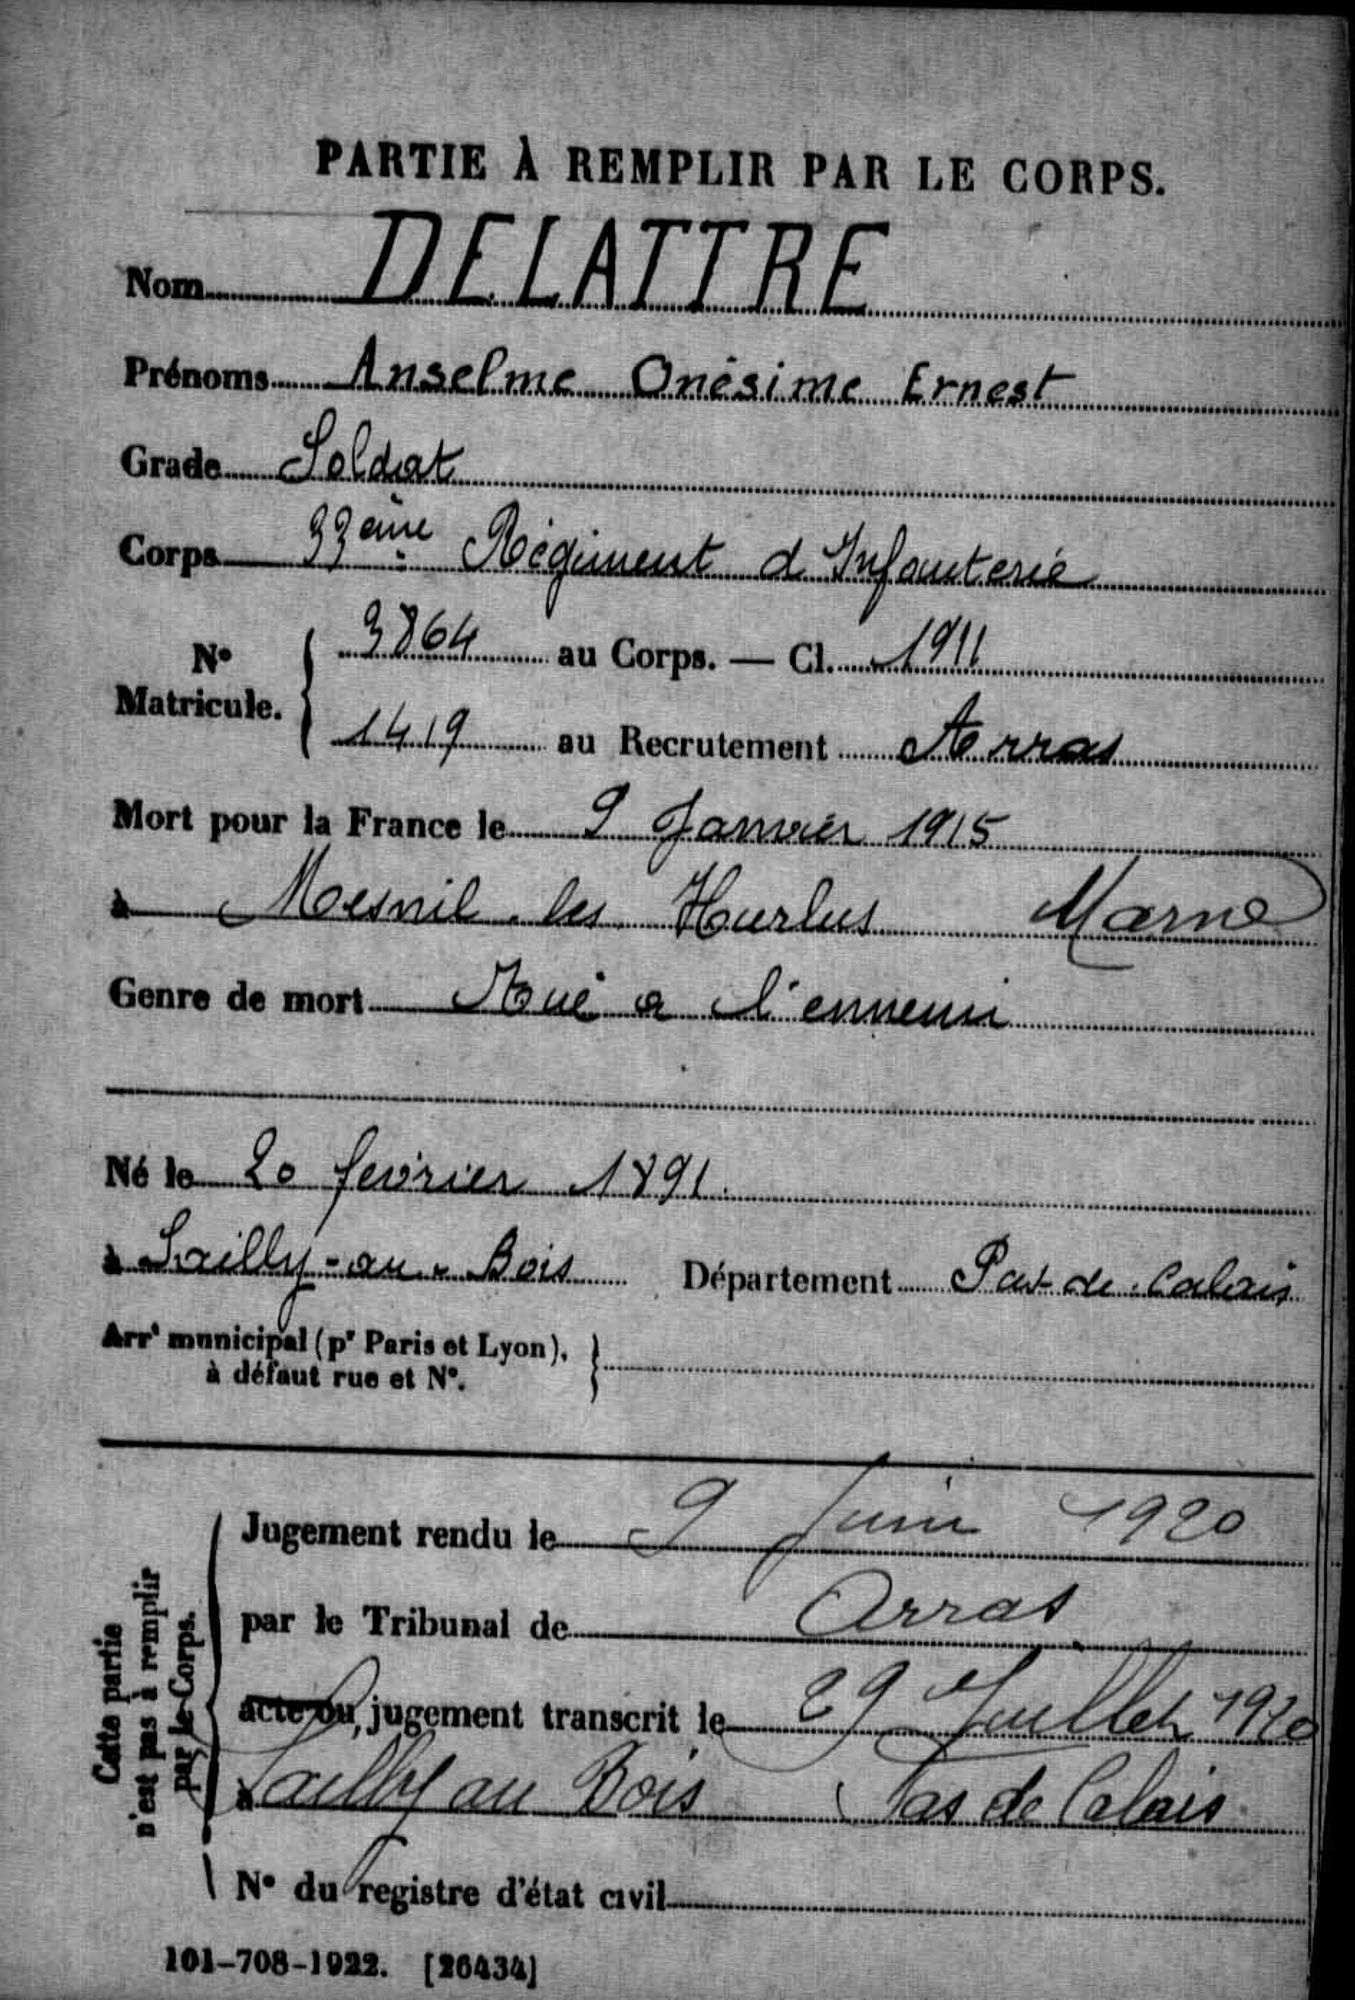 PARTIE À REMPLIR PAR LE CORPS.
Nom DELATTRE
Prénoms Anselme Onésime Ernest
Grade Soldat
Corps 33ème Régiment d'Infanterie
N° Matricule. { 3864 au Corps. — Cl. 1911
1419 au Recrutement Arras
Mort pour la France le 9 Janvier 1915
à Mesnil les Hurlus Marne
Genre de mort Tué a l'ennemi
Né le 20 février 1891.
à Sailly-au-Bois Département Pas-de-Calais
Arrt municipal (pr Paris et Lyon), }
à défaut rue et N°.
Cette partie
n'est pas à remplir
par le Corps.
Jugement rendu le 9 Juin 1920
par le Tribunal de Arras
acte ou jugement transcrit le 29 Juillet 1920
à Sailly au Bois Pas de Calais
N° du registre d'état civil
101-708-1922. [26434]